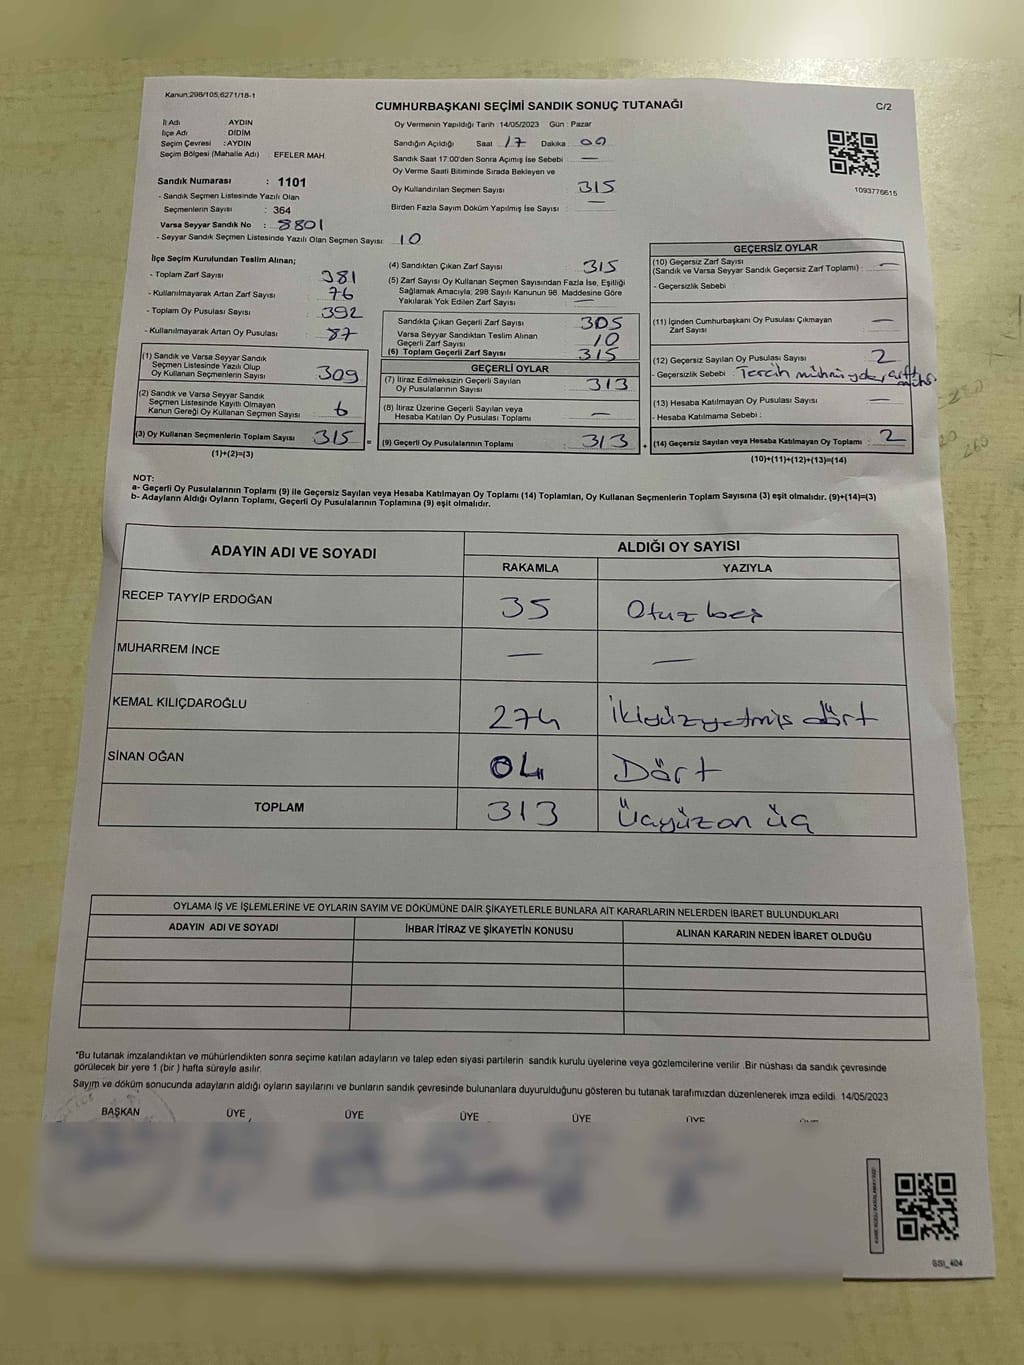 Kanun:298/105,6271/18-1
CUMHURBAŞKANI SEÇİMİ SANDIK SONUÇ TUTANAĞI
C/2
İl Adı AYDIN
İlçe Adı DİDİM
Seçim Çevresi :AYDIN
Seçim Bölgesi (Mahalle Adı) : EFELER MAH.
Sandık Numarası : 1101
- Sandık Seçmen Listesinde Yazılı Olan
Seçmenlerin Sayısı : 364
Varsa Seyyar Sandık No : 8801
- Seyyar Sandık Seçmen Listesinde Yazılı Olan Seçmen Sayısı: 10
Oy Vermenin Yapıldığı Tarih :14/05/2023 Gün : Pazar
Sandığın Açıldığı Saat 17 Dakika 00
Sandık Saat 17:00'den Sonra Açımış İse Sebebi —
Oy Verme Saati Bitiminde Sırada Bekleyen ve
Oy Kullandırılan Seçmen Sayısı 315
Birden Fazla Sayım Döküm Yapılmış İse Sayısı : —
1093776615
İlçe Seçim Kurulundan Teslim Alınan;
- Toplam Zarf Sayısı 381
- Kullanılmayarak Artan Zarf Sayısı 76
- Toplam Oy Pusulası Sayısı 392
- Kullanılmayarak Artan Oy Pusulası 87
(1) Sandık ve Varsa Seyyar Sandık
Seçmen Listesinde Yazılı Olup
Oy Kullanan Seçmenlerin Sayısı 309
(2) Sandık ve Varsa Seyyar Sandık
Seçmen Listesinde Kayıtlı Olmayan
Kanun Gereği Oy Kullanan Seçmen Sayısı 6
(3) Oy Kullanan Seçmenlerin Toplam Sayısı 315 =
(1)+(2)=(3)
(4) Sandıktan Çıkan Zarf Sayısı 315
(5) Zarf Sayısı Oy Kullanan Seçmen Sayısından Fazla İse, Eşitliği
Sağlamak Amacıyla; 298 Sayılı Kanunun 98. Maddesine Göre
Yakılarak Yok Edilen Zarf Sayısı —
Sandıkta Çıkan Geçerli Zarf Sayısı 305
Varsa Seyyar Sandıktan Teslim Alınan
Geçerli Zarf Sayısı 10
(6) Toplam Geçerli Zarf Sayısı 315
GEÇERLİ OYLAR
(7) İtiraz Edilmeksizin Geçerli Sayılan
Oy Pusulalarının Sayısı 313
(8) İtiraz Üzerine Geçerli Sayılan veya
Hesaba Katılan Oy Pusulası Toplamı —
(9) Geçerli Oy Pusulalarının Toplamı 313 +
GEÇERSİZ OYLAR
(10) Geçersiz Zarf Sayısı
(Sandık ve Varsa Seyyar Sandık Geçersiz Zarf Toplamı) : —
- Geçersizlik Sebebi
(11) İçinden Cumhurbaşkanı Oy Pusulası Çıkmayan
Zarf Sayısı —
(12) Geçersiz Sayılan Oy Pusulası Sayısı 2
- Geçersizlik Sebebi : Tercih mührü yok, çift mühür.
(13) Hesaba Katılmayan Oy Pusulası Sayısı —
- Hesaba Katılmama Sebebi :
(14) Geçersiz Sayılan veya Hesaba Katılmayan Oy Toplamı : 2
(10)+(11)+(12)+(13)=(14)
NOT:
a- Geçerli Oy Pusulalarının Toplamı (9) ile Geçersiz Sayılan veya Hesaba Katılmayan Oy Toplamı (14) Toplamları, Oy Kullanan Seçmenlerin Toplam Sayısına (3) eşit olmalıdır. (9)+(14)=(3)
b- Adayların Aldığı Oyların Toplamı, Geçerli Oy Pusulalarının Toplamına (9) eşit olmalıdır.
ADAYIN ADI VE SOYADI
ALDIĞI OY SAYISI
RAKAMLA YAZIYLA
RECEP TAYYİP ERDOĞAN 35 Otuz beş
MUHARREM İNCE — —
KEMAL KILIÇDAROĞLU 274 İkiyüzyetmiş dört
SİNAN OĞAN 04 Dört
TOPLAM 313 Üçyüzon üç
OYLAMA İŞ VE İŞLEMLERİNE VE OYLARIN SAYIM VE DÖKÜMÜNE DAİR ŞİKAYETLERLE BUNLARA AİT KARARLARIN NELERDEN İBARET BULUNDUKLARI
ADAYIN ADI VE SOYADI İHBAR İTİRAZ VE ŞİKAYETİN KONUSU ALINAN KARARIN NEDEN İBARET OLDUĞU
*Bu tutanak imzalandıktan ve mühürlendikten sonra seçime katılan adayların ve talep eden siyasi partilerin sandık kurulu üyelerine veya gözlemcilerine verilir .Bir nüshası da sandık çevresinde
görülecek bir yere 1 (bir ) hafta süreyle asılır.
Sayım ve döküm sonucunda adayların aldığı oyların sayılarını ve bunların sandık çevresinde bulunanlara duyurulduğunu gösteren bu tutanak tarafımızdan düzenlenerek imza edildi. 14/05/2023
BAŞKAN ÜYE ÜYE ÜYE ÜYE ÜYE
SSI_404